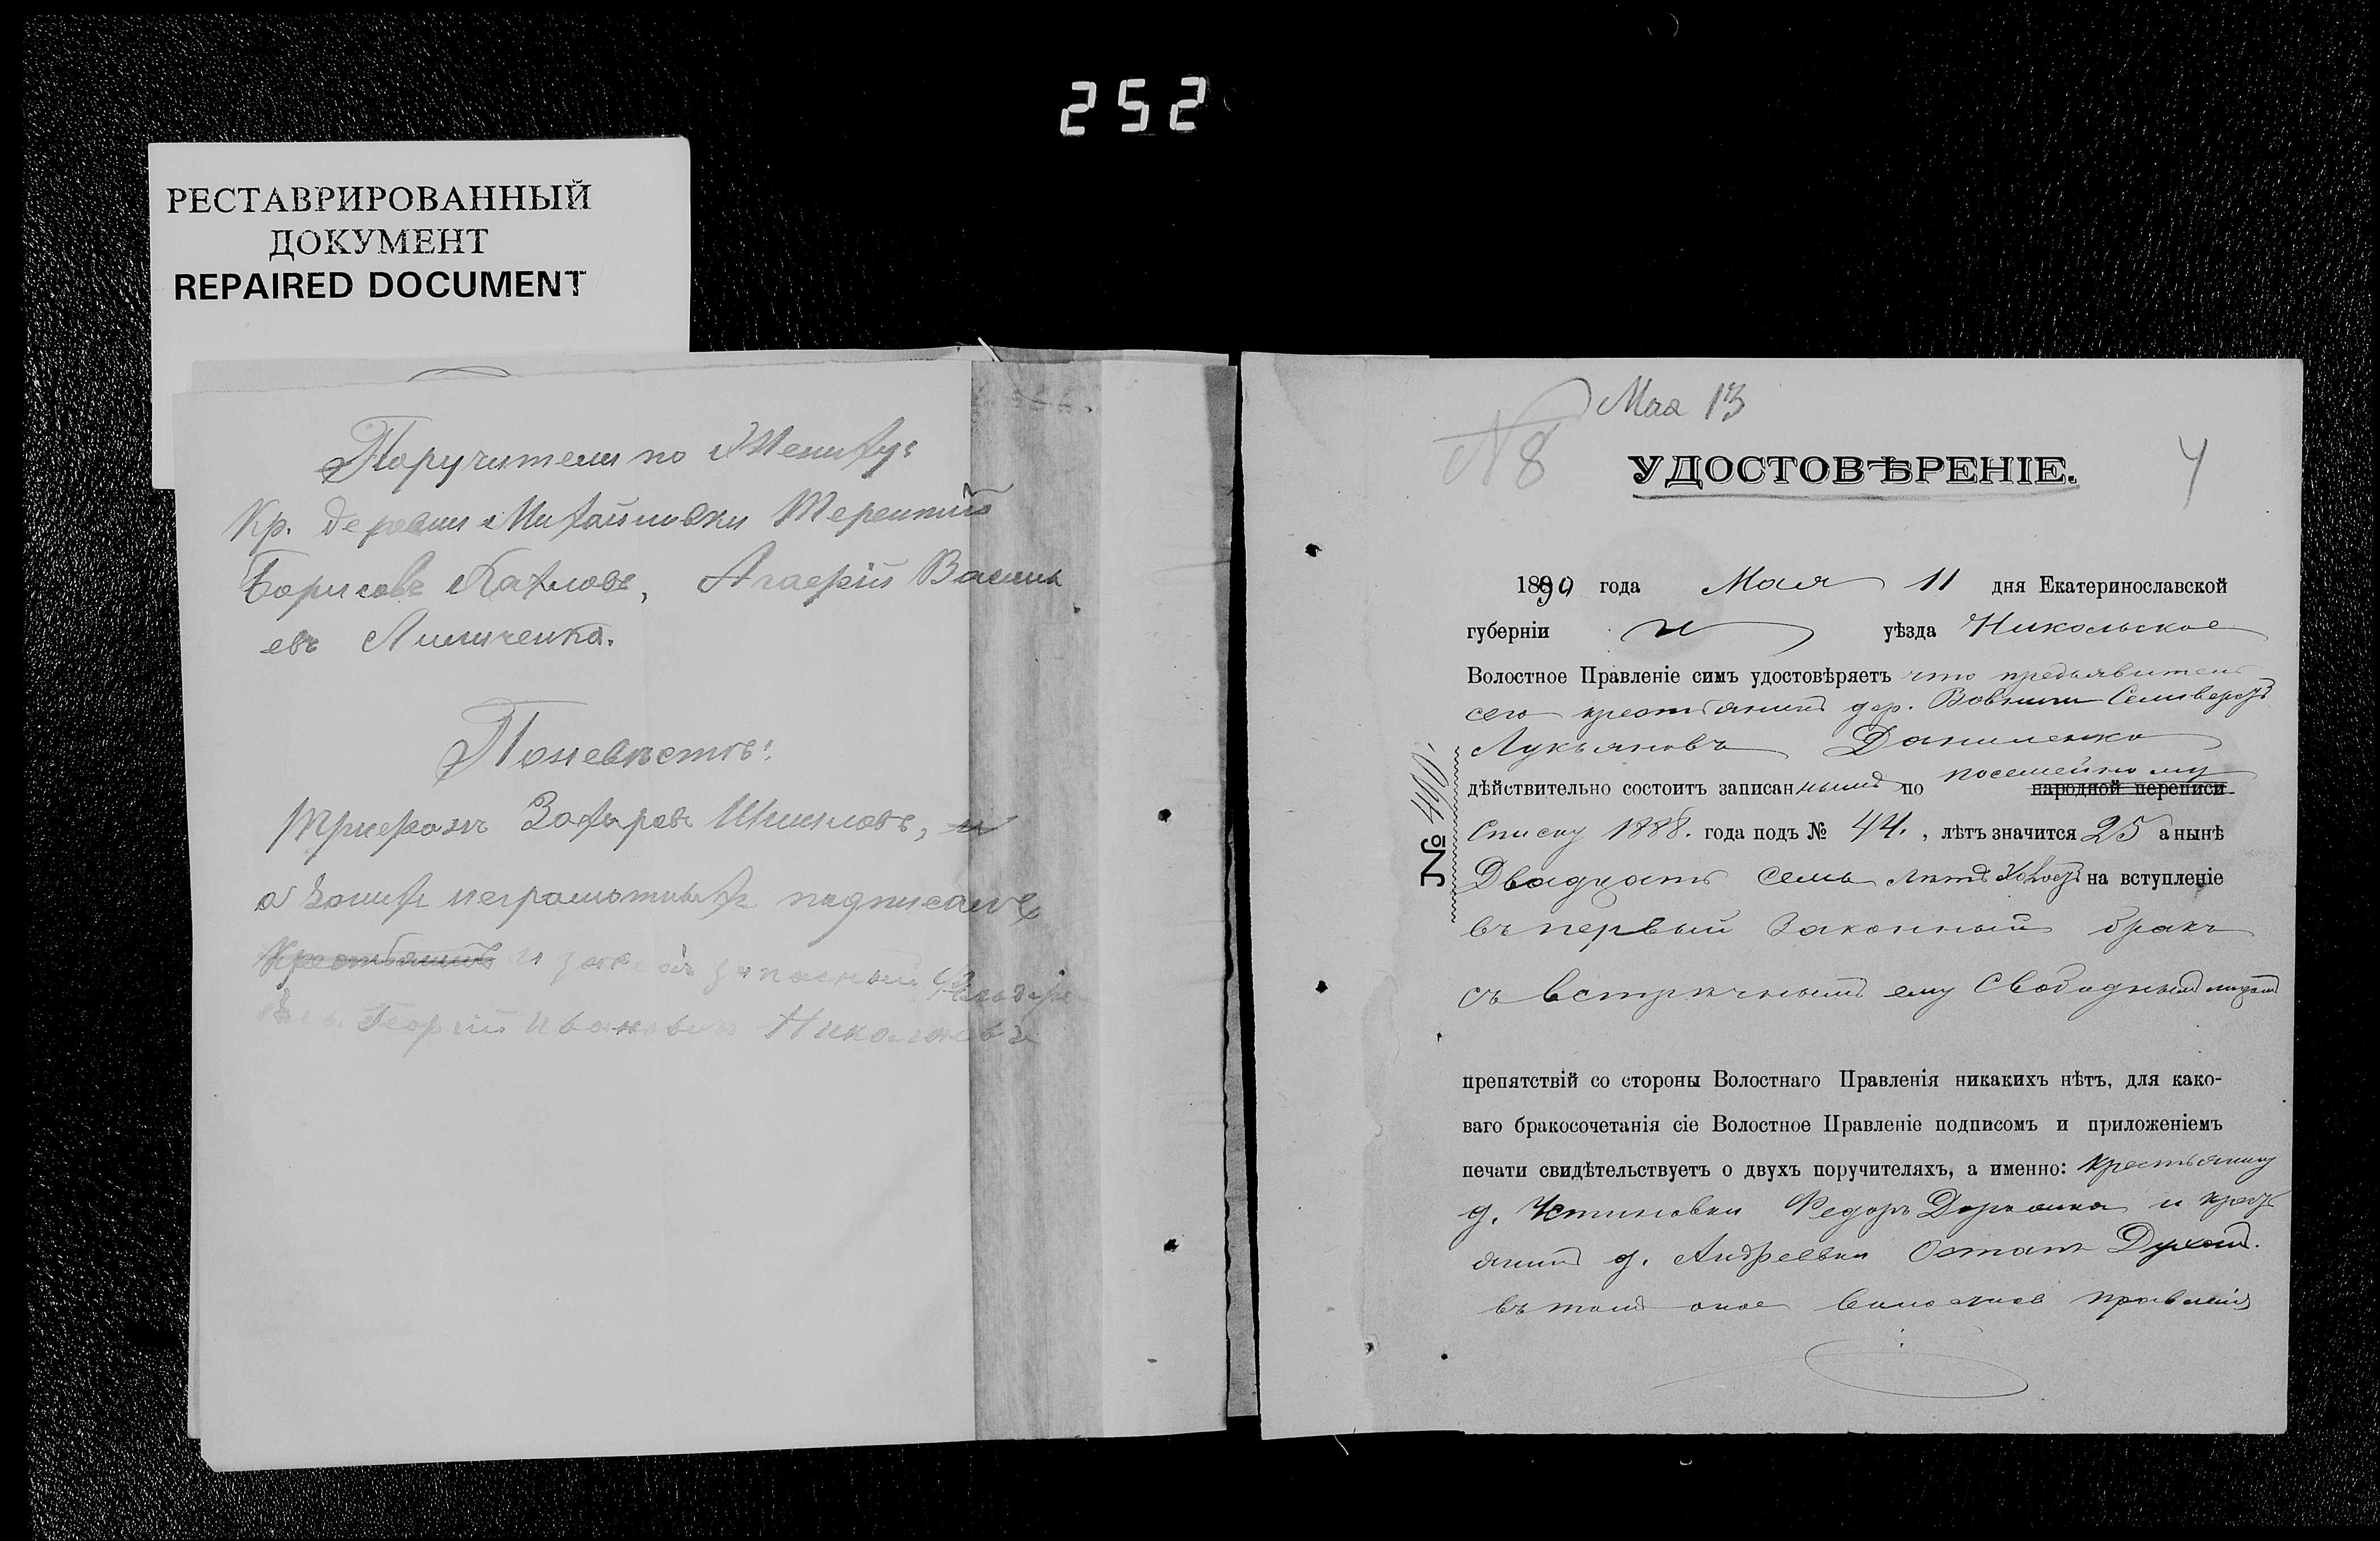 252
РЕСТАВРИРОВАННЫЙ
ДОКУМЕНТ
REPAIRED DOCUMENT
Поручители по Жениху:
Кр. деревни Михайловки Терентій
Борисовъ, Агаѳій Васильевъ
По невѣстѣ:
Трифонъ Захаровъ Шишловъ, и
а за нихъ неграмотныхъ подписался
Крестьянинъ запасный
Георгій Ивановичъ Николаевъ
Мая 13
№ 8
4
УДОСТОВѢРЕНІЕ.
1890 года Мая 11 дня Екатеринославской
губерніи и уѣзда Никольское
Волостное Правленіе симъ удостовѣряетъ что предъявитель
сего крестьянинъ дер. Вовниги Селиверстъ
Лукьяновъ Даниленко
дѣйствительно состоитъ записаннымъ по посемейному
народной переписи
Списку 1888. года подъ № 44. , лѣтъ значится 25 а нынѣ
Двадцать семь лѣтъ холостъ на вступленіе
въ первый законный бракъ
съ встрѣчнымъ ему свободнымъ лицомъ
препятствій со стороны Волостнаго Правленія никакихъ нѣтъ, для како-
ваго бракосочетанія сіе Волостное Правленіе подписомъ и приложеніемъ
печати свидѣтельствуетъ о двухъ поручителяхъ, а именно: крестьянинъ
д. Устиновки Федоръ и крест
янинъ д. Андреевки Остапъ
въ томъ оное волостное правленіе
№ 490.